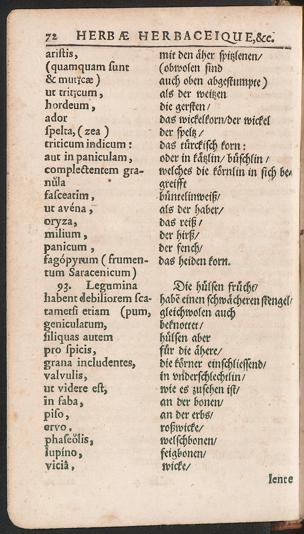 72 HERBÆ HERBACEIQUE, &c.
aristis, mit den äher spitzlenen/
(quamquam sunt (obwolen sind
& muticæ) auch oben abgestumpte)
ut triticum, als der weitzen
hordeum, die gersten/
ador das wickelkorn/der wickel
spelta, (zea) der speltz/
triticum indicum: das türckisch korn:
aut in paniculam, oder in kätzlin/büschlin/
complectentem gra- welches die körnlin in sich be-
nula greifft
fasceatim, büntelinweiß/
ut avéna, als der haber/
oryza, das reiß/
milium, der hirß/
panicum, der fench/
fagópyrum (frumen- das heiden korn.
tum Saracenicum)
93. Legumina Die hülsen frücht/
habent debiliorem sca- habē einen schwächeren stengel/
tametsi etiam (pum, gleichwolen auch
geniculatum, beknottet/
siliquas autem hülsen aber
pro spicis, für die ähere/
grana includentes, die körner einschliessend/
valvulis, in underschlechtlin/
ut videre est, wie es zusehen ist/
in faba, an der bonen/
piso, an der erbs/
ervo, roßwicke/
phaseölis, welschbonen/
lupíno, feigbonen/
vicia, wicke/
Iente